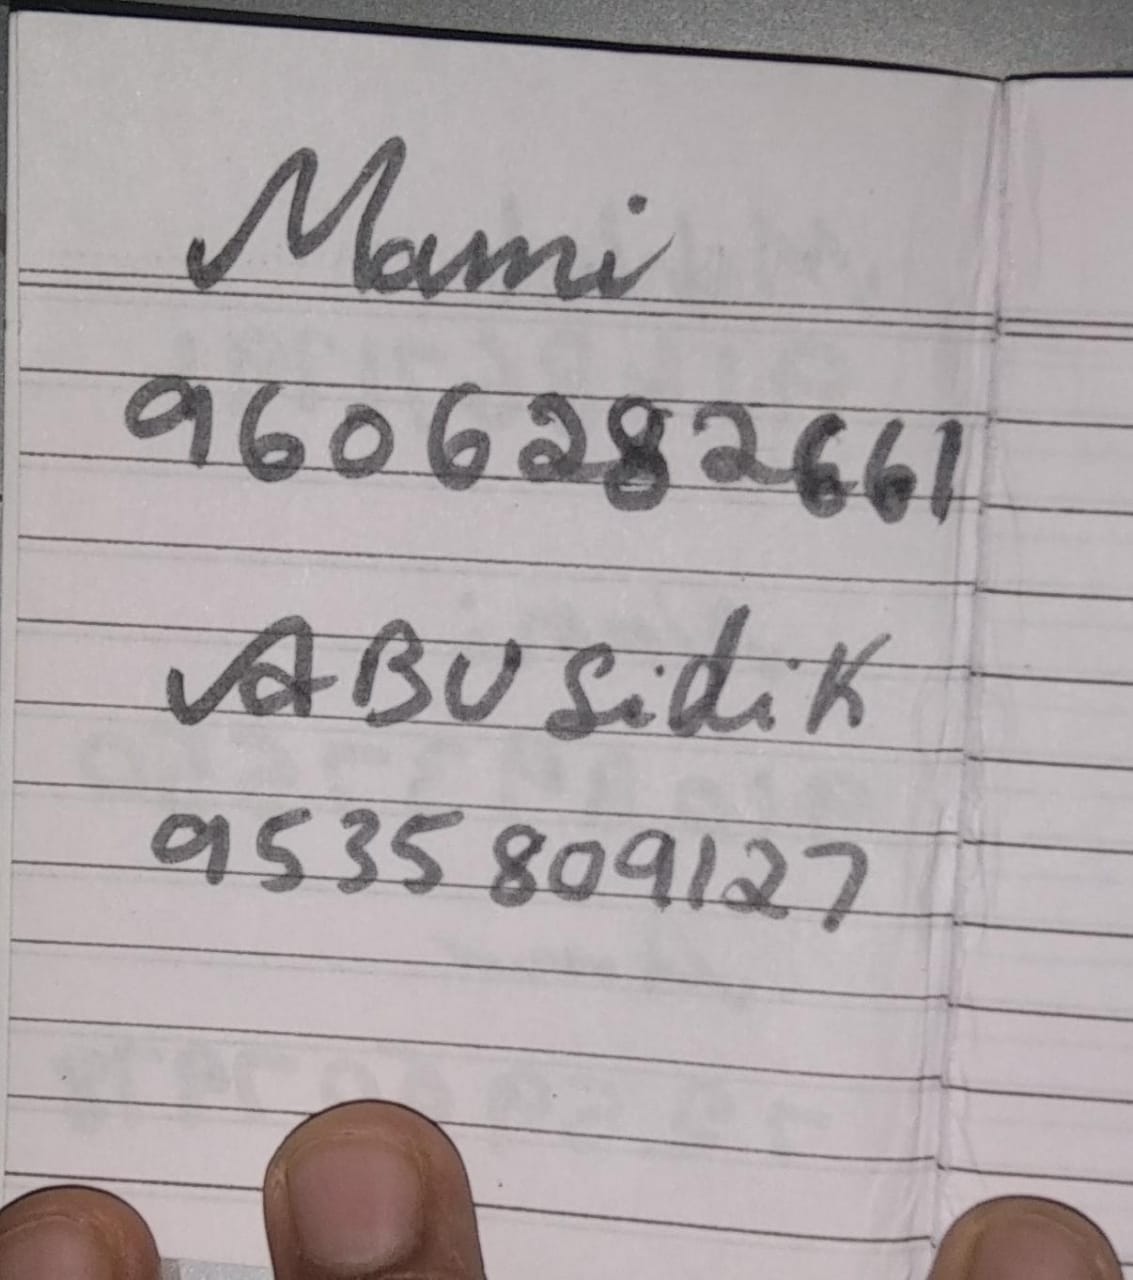 Mami
9606282661
ABU Sidik
9535809127